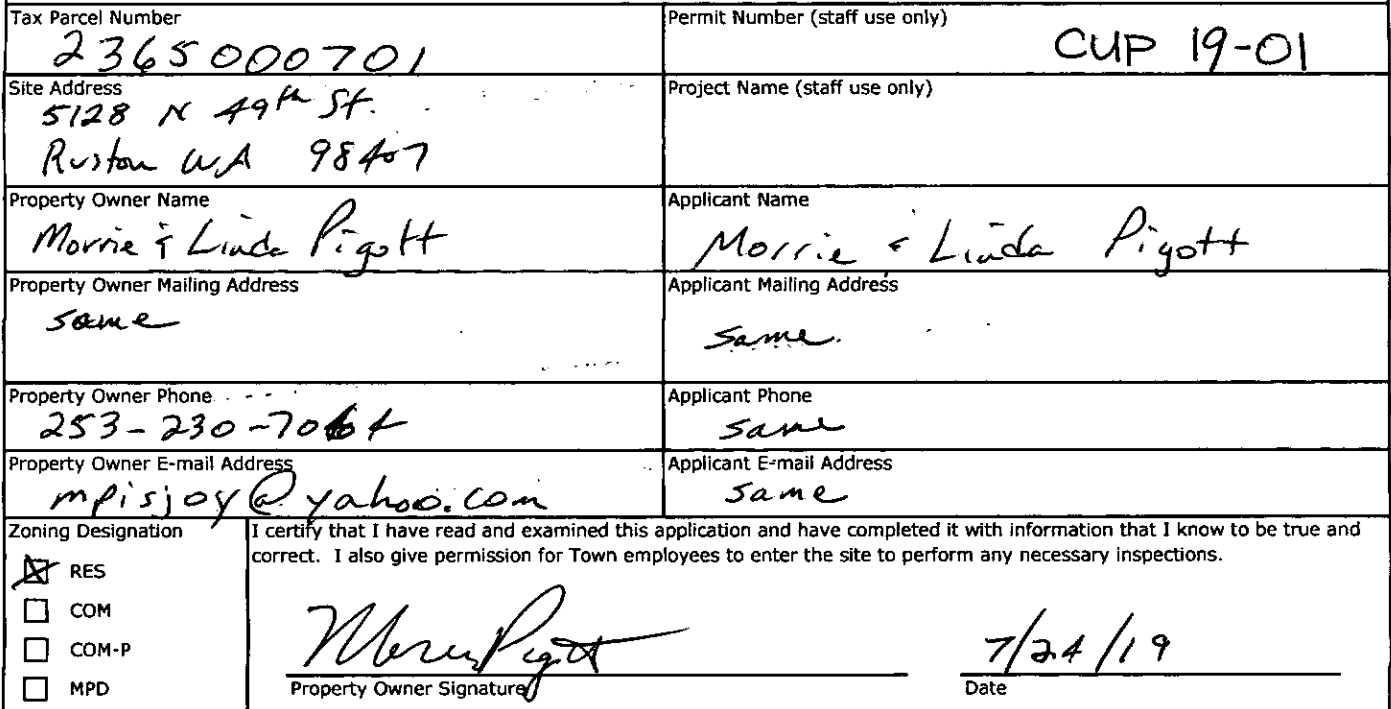 Tax Parcel Number
2365000701
Permit Number (staff use only)
CUP 19-01
Site Address
5128 N 49th St.
Ruston WA 98407
Project Name (staff use only)
Property Owner Name
Morrie & Linda Pigott
Applicant Name
Morrie & Linda Pigott
Property Owner Mailing Address
same
Applicant Mailing Address
same.
Property Owner Phone
253-230-7064
Applicant Phone
same
Property Owner E-mail Address
mpisjoy@yahoo.com
Applicant E-mail Address
same
Zoning Designation
RES
COM
COM-P
MPD
I certify that I have read and examined this application and have completed it with information that I know to be true and
correct. I also give permission for Town employees to enter the site to perform any necessary inspections.
Property Owner Signature
7/24/19
Date